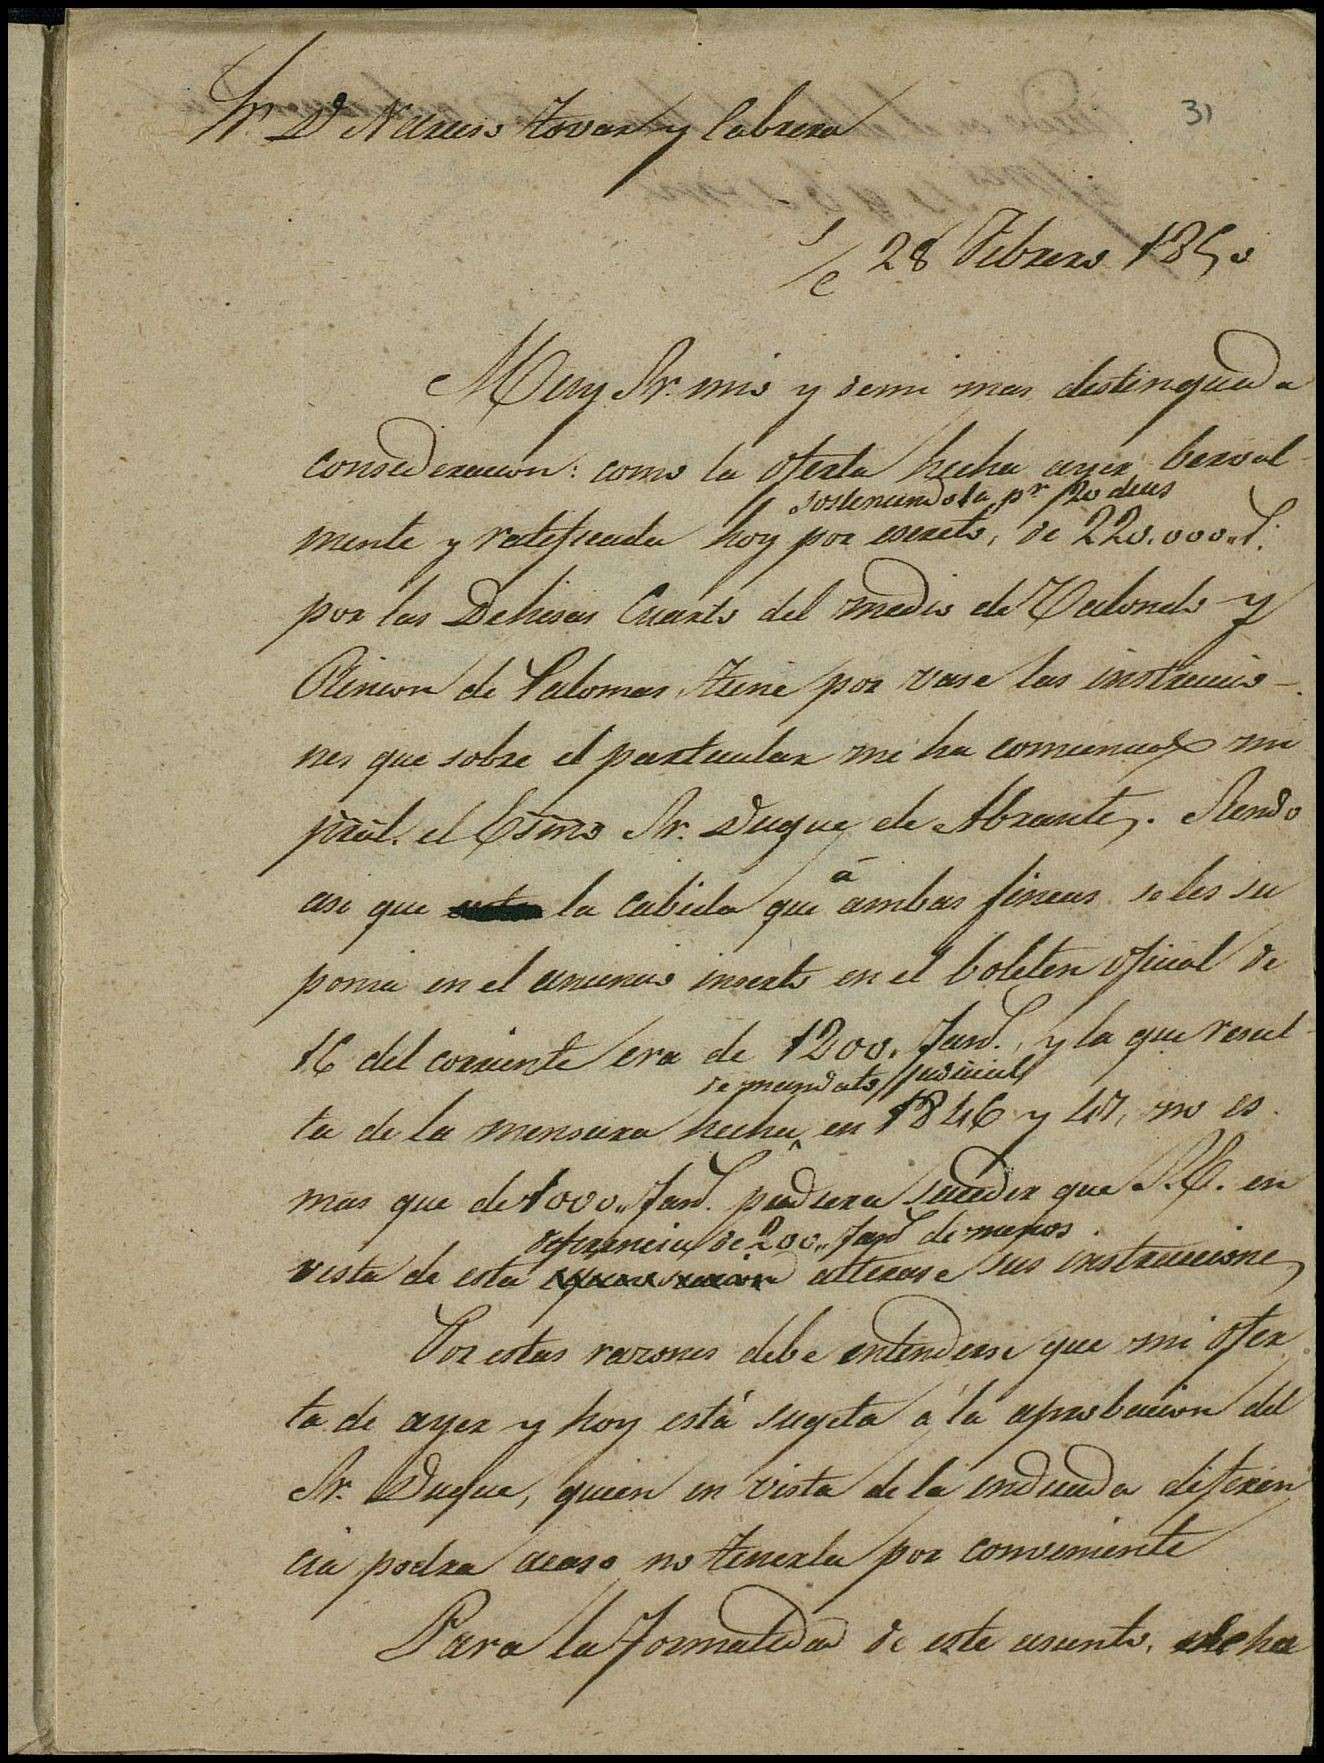 31
Sr. Dn Narciso Tovar y Cabrera
S/c 28 Febrero 1850
Muy Sr. mio y demi mas distinguida
consideracion: como la oferta hecha ayer berval-
sosteniendola pr. 20 dias
mente y ratificada hoy por escrito, de 220.000 „
por las Dehesas Cuarto del medio de Redondo y
Rincon de Palomas, tiene por vase las instruccio-
nes que sobre el particular me ha comunicado mi
pral. el Esmo Sr. Duque de Abrantes. Siendo
asi que la cabida que á ambas fincas se les su
ponia en el anuncio inserto en el boletin oficial de
16 del corriente era de 1200. fans., y la que resul-
de mandato judicial
ta de la mensura hecha en 1846 y 47, no es
mas que de 1000„ fans. pudiera suceder que S.E. en
diferencia de 200„ fans. de menos
vista de esta alterase sus instrucciones
Por estas razones debe entenderse que mi ofer
ta de ayer y hoy está sugeta á la aprobacion del
Sr. Duque, quien en vista de la indicada diferen
cia podra acaso no tenerla por conveniente
Para la formalidad de este asunto, ha